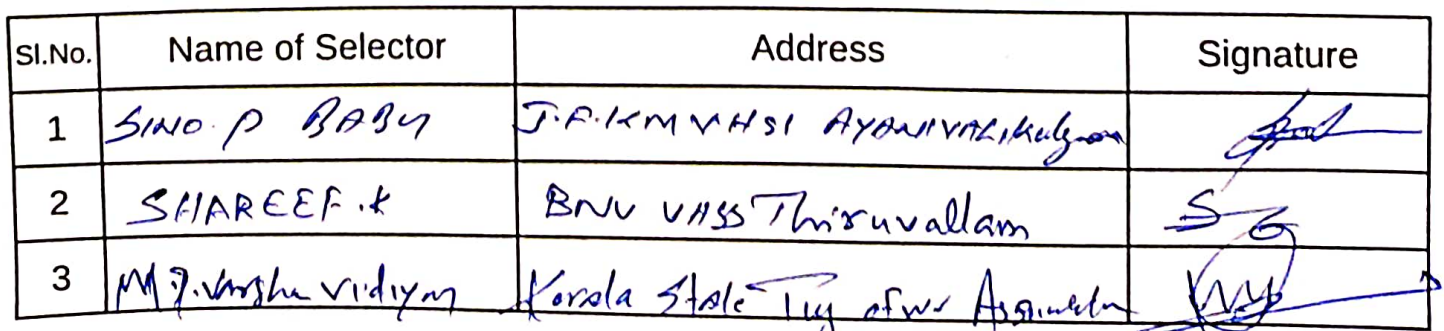 Sl.No. Name of Selector Address Signature
1 SINO. P BABU J.F.KM VHSS
2 SHAREEF.K BNV VHSS Thiruvallam
3 Kerala State Tug of War Association